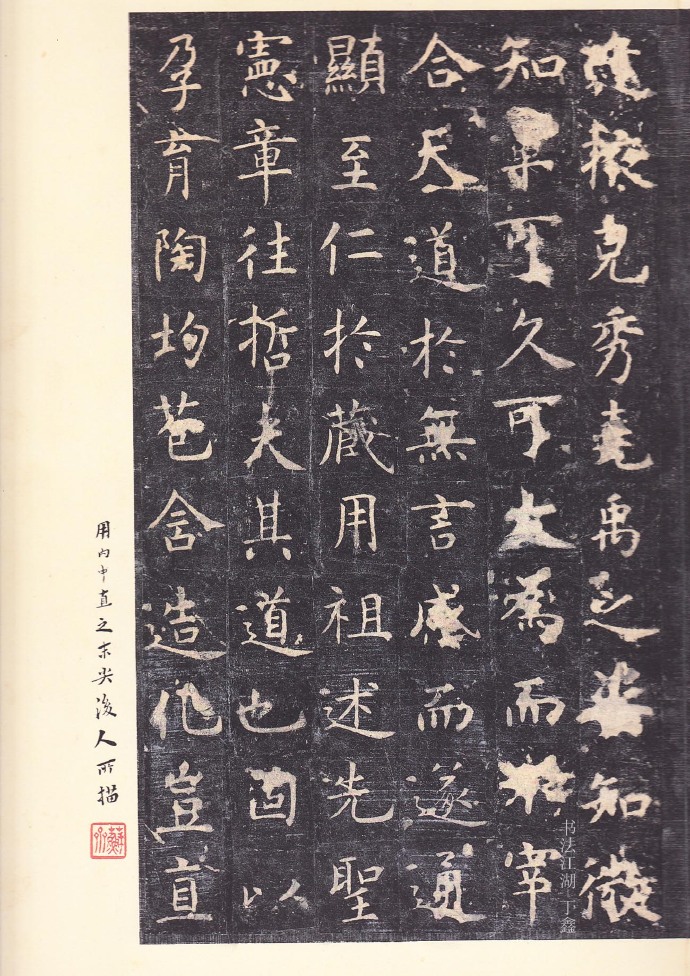 克秀堯禹之姿知微
知章可久可大為而不宰
合天道於無言感而遂通
顯至仁於藏用祖述先聖
憲章往哲夫其道也固以
孕育陶均苞含造化豈直
用內中直之末尖後人所描
书法江湖 丁鑫